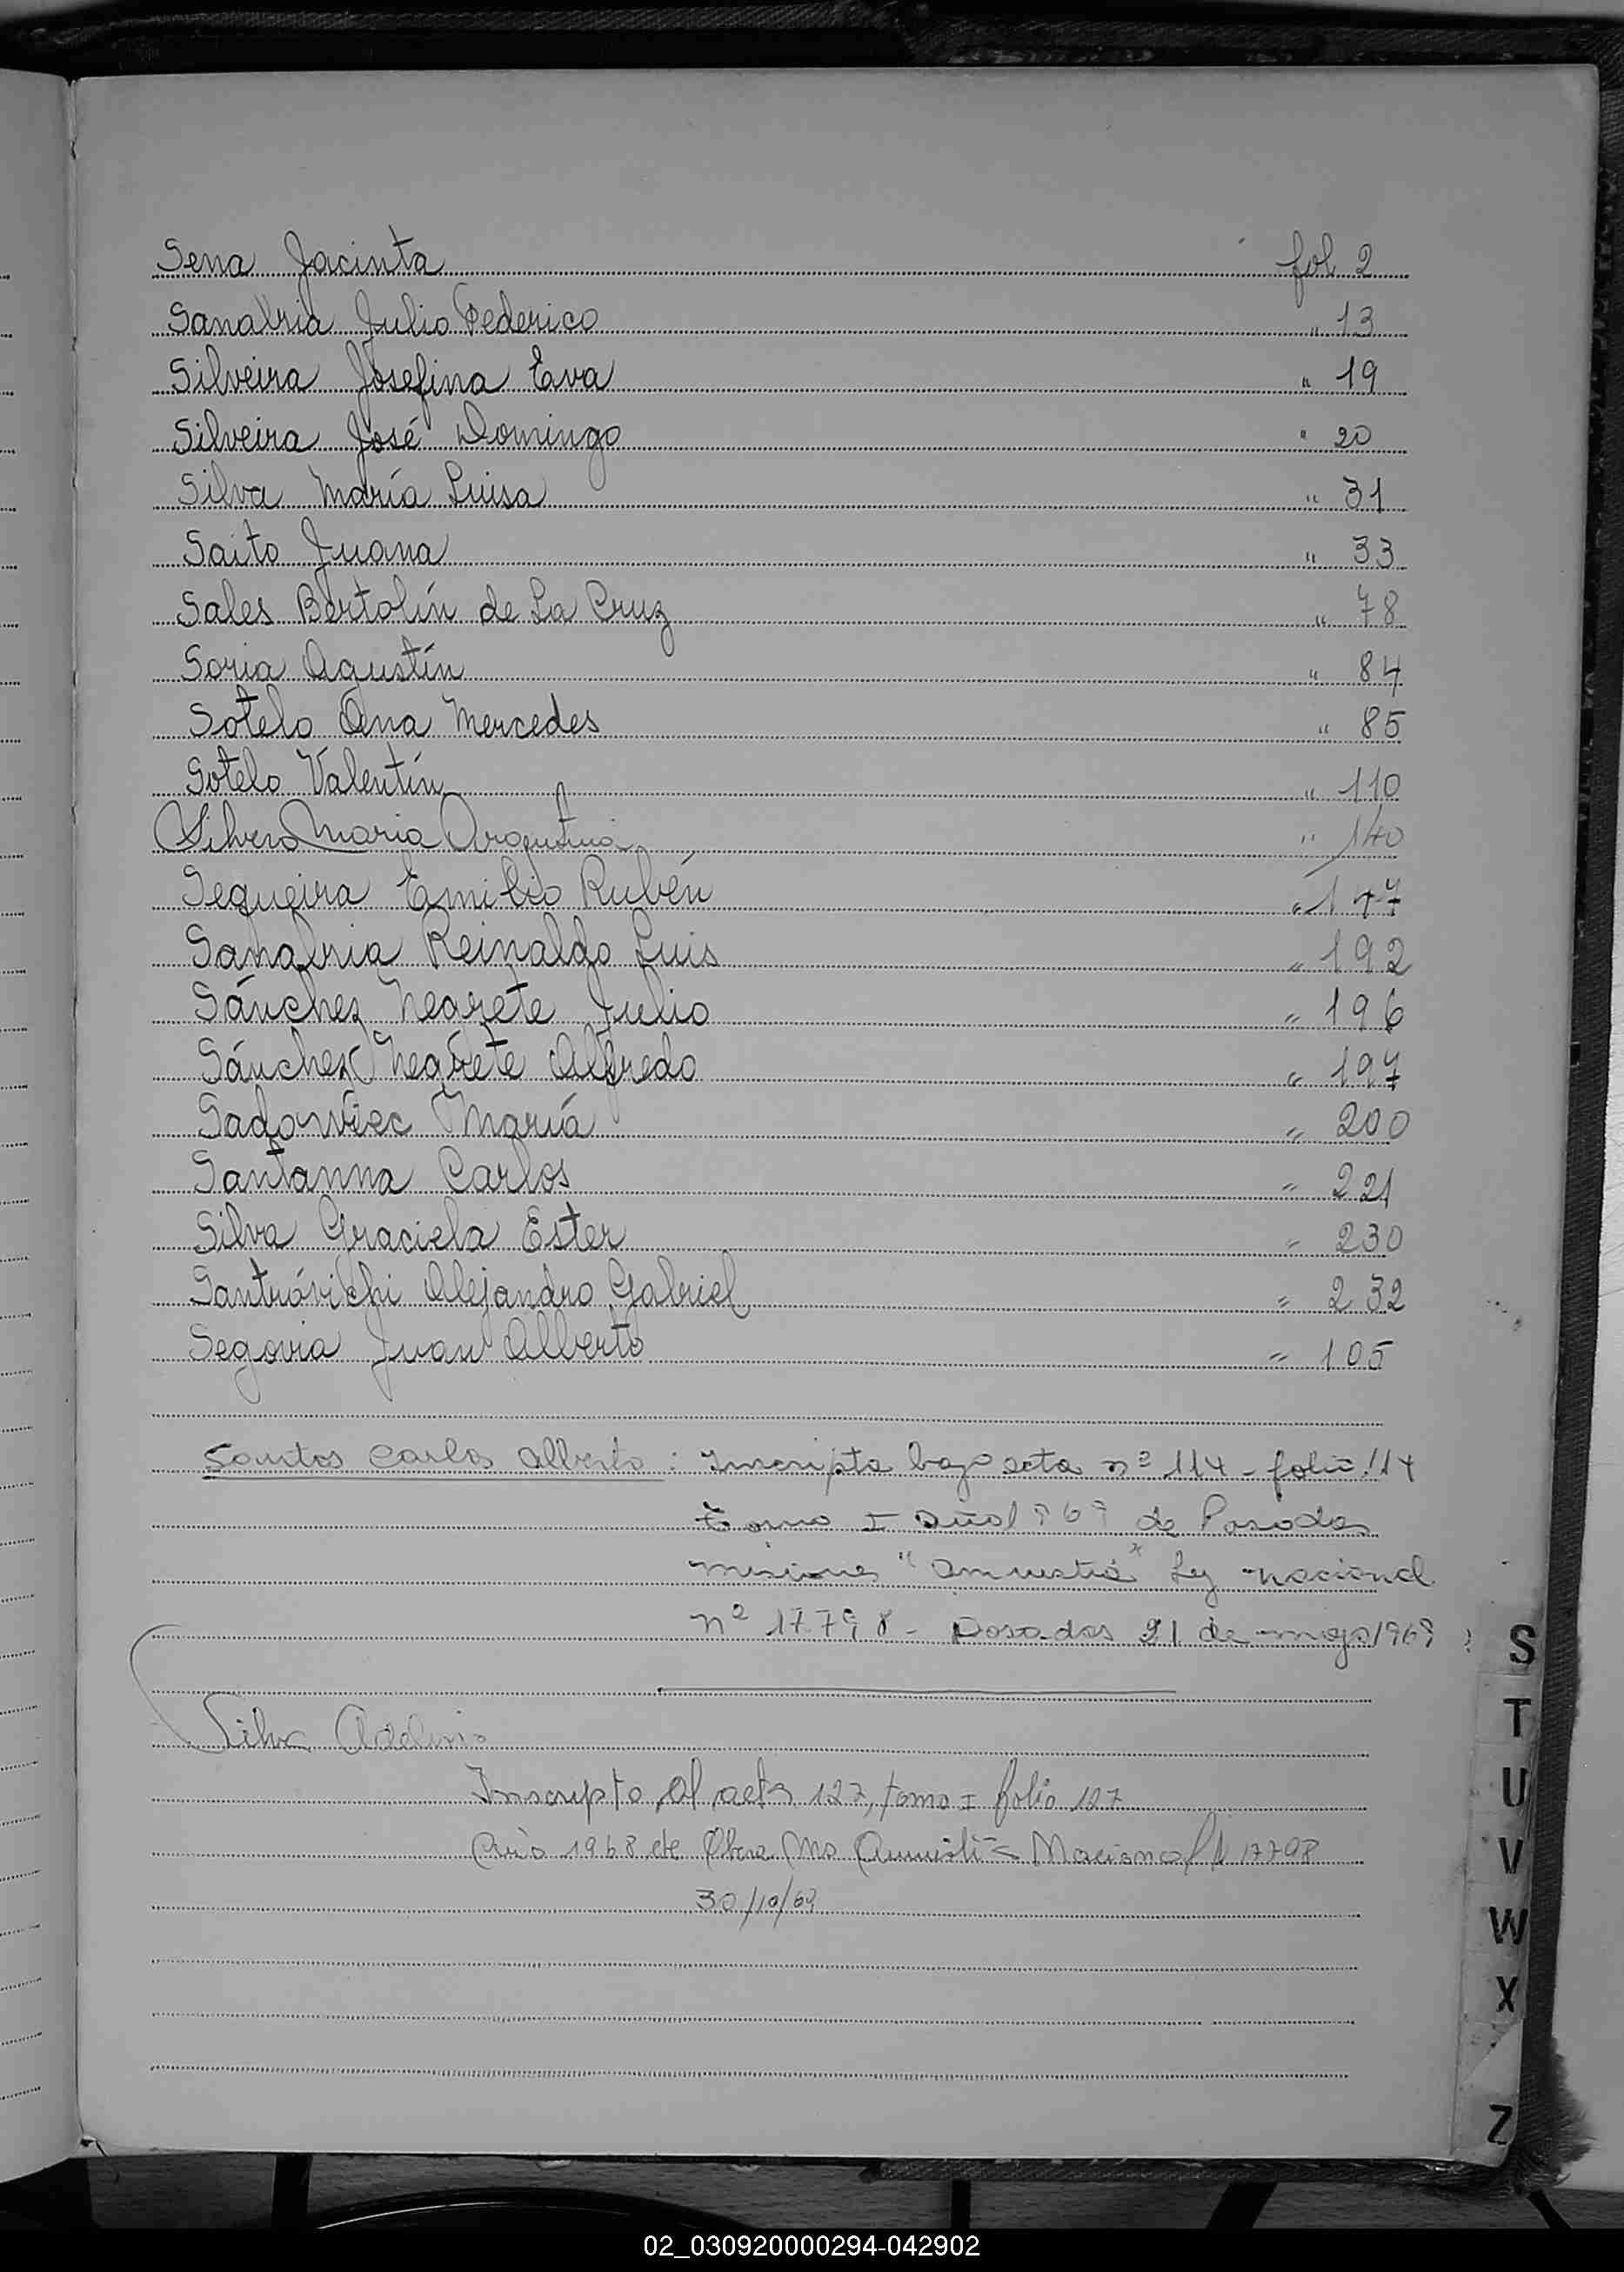 Sena Jacinta fol 2
Sanabria Julio Federico " 13
Silveira Josefina Eva " 19
Silveira José Domingo " 20
Silva María Luisa " 31
Saito Juana " 33
Sales Bertolín de La Cruz " 78
Soria Agustín " 84
Sotelo Ana Mercedes " 85
Sotelo Valentín " 110
Silvero Maria Argentina " 140
Sequeira Emilio Rubén " 147
Sanabria Reinaldo Luis " 192
Sánchez Negrete Julio " 196
Sánchez Negrete Alfredo " 197
Sadowiec María " 200
Santanna Carlos " 221
Silva Graciela Ester " 230
Santróvichi Alejandro Gabriel " 232
Segovia Juan Alberto " 105
Santos Carlos Alberto : Inscripta bajo acta nº 114 - folio 114
tomo I año 1969 de Posadas
misiones "amnistia" Ley nacional
nº 17.798 - Posadas 21 de mayo 1969
Silva Adelino
Inscripto al acta 127, tomo I folio 127
Año 1968 de Obera Mns Amnistia Nacional 17798
30/10/69
S
T
U
V
W
X
Z
02_030920000294-042902